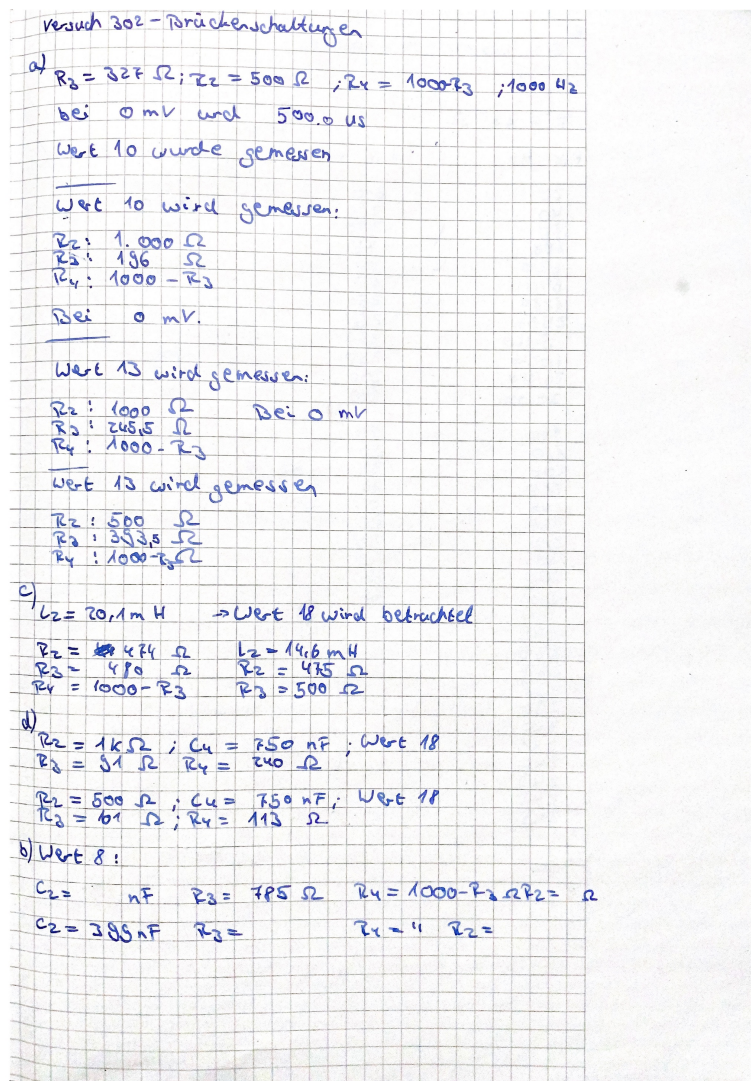 Versuch 302 - Brückenschaltungen
a) R3 = 327 Ω; R2 = 500 Ω ; R4 = 1000-R3 ; 1000 Hz
bei 0 mV und 500.0 us
Wert 10 wurde gemessen
Wert 10 wird gemessen:
R2: 1.000 Ω
R3: 196 Ω
R4: 1000 - R3
Bei 0 mV.
Wert 13 wird gemessen:
R2: 1000 Ω Bei 0 mV
R3: 245,5 Ω
R4: 1000 - R3
Wert 13 wird gemessen
R2: 500 Ω
R3: 393,5 Ω
R4: 1000-R3 Ω
c)
L2 = 20,1 m H → Wert 18 wird betrachtet
R2 = 474 Ω L2 = 14,6 mH
R3 = 480 Ω R2 = 475 Ω
R4 = 1000 - R3 R3 = 500 Ω
d)
R2 = 1kΩ ; C4 = 750 nF ; Wert 18
R3 = 91 Ω R4 = 240 Ω
R2 = 500 Ω ; C4 = 750 nF; Wert 18
R3 = 101 Ω ; R4 = 113 Ω
b) Wert 8:
C2 = nF R3 = 785 Ω R4 = 1000-R3 Ω R2 = Ω
C2 = 399 nF R3 = R4 = " R2 =